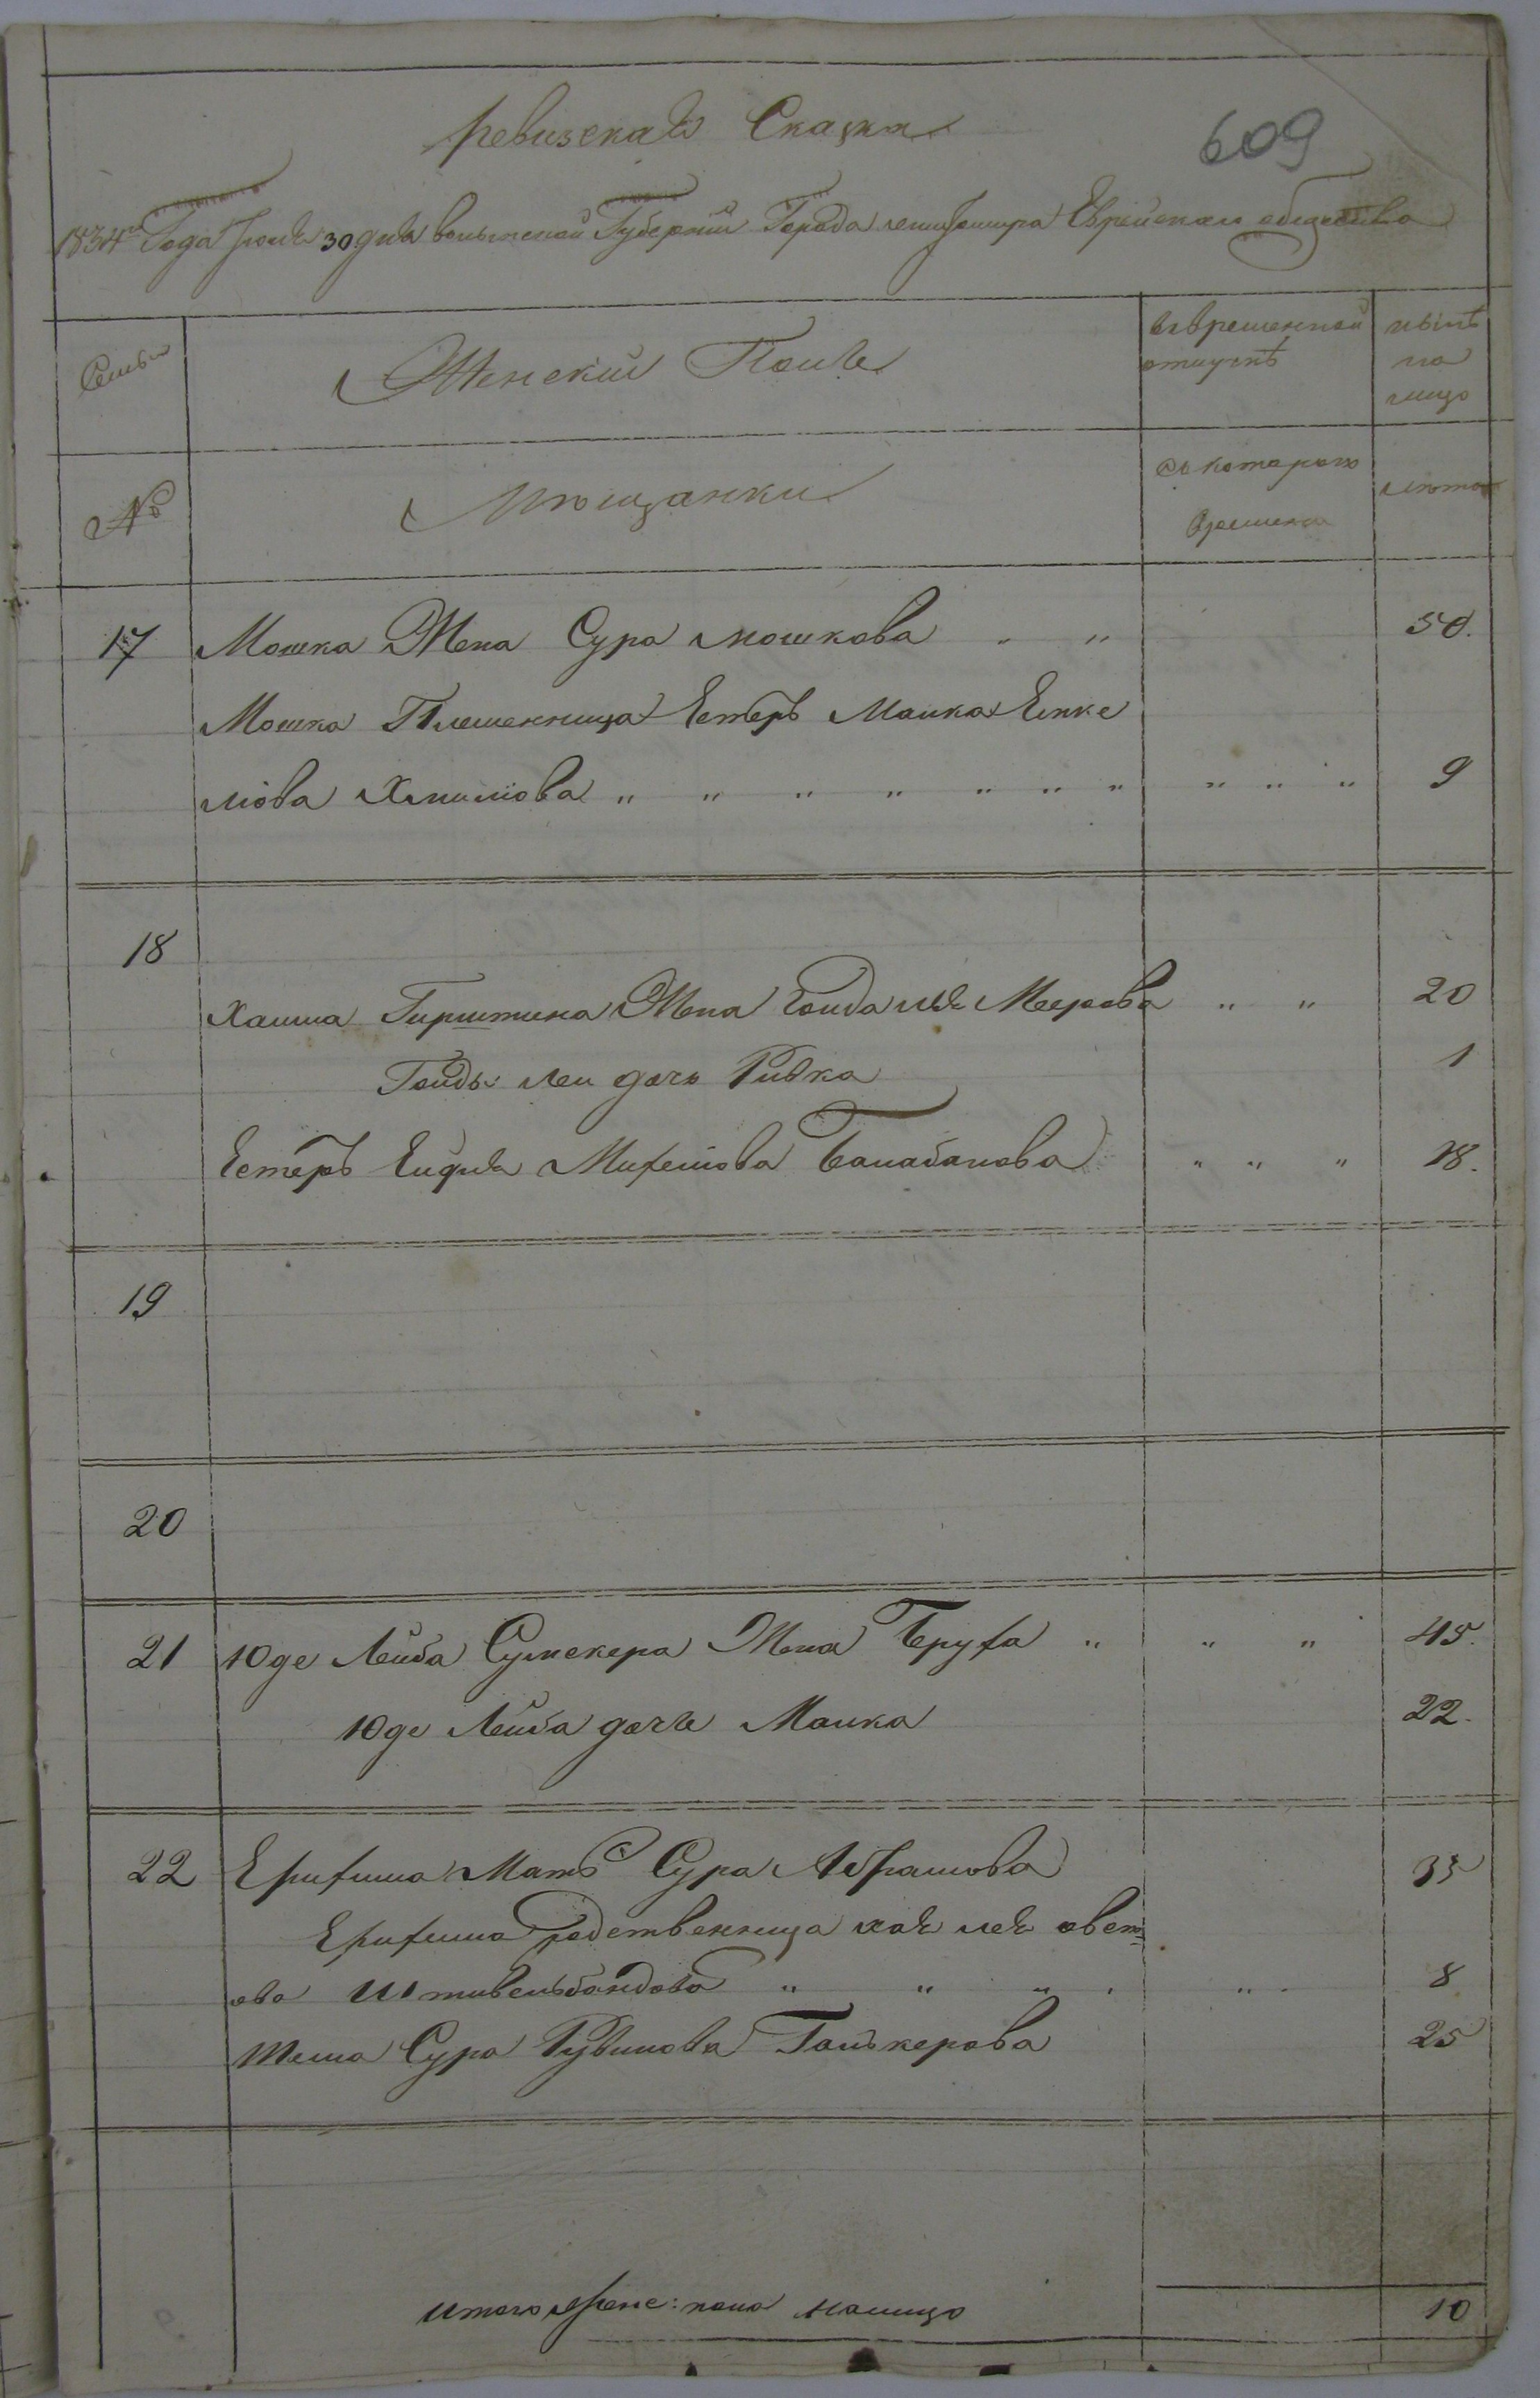 Ревизская Сказка
609
1834го Года Июня 30 дня волынской Губернии Города Житомира Еврейскаго общества
Семьи
Женский Полъ
вовременной отлучкѣ
нынѣ на лицо
№
Мѣщанки
съ котораго времени
лѣта
17 Мошка Жена Сура мошкова " " 50.
Мошка Племенница Естеръ Малка Елке
ліова Хаимова " " " " " " " " " " 9
18
Хаима Жена Голда лея Меерова " " 20
Голды Леи дочь Ривка 1
Естеръ Ендля Михелова Балабанова " " " 18.
19
20
21 Юде Лейба Сумекера Жена Бруха " " " 45.
Юде Лейба дочь Малка 22.
22 Ерихима Мать Сура Абрамова 35
Ерихима родственница хая лея овет
ова Штивельбандова " " " " 8
Теща Сура Рувинова Галькерова 25
итого жене: пола налицо 10